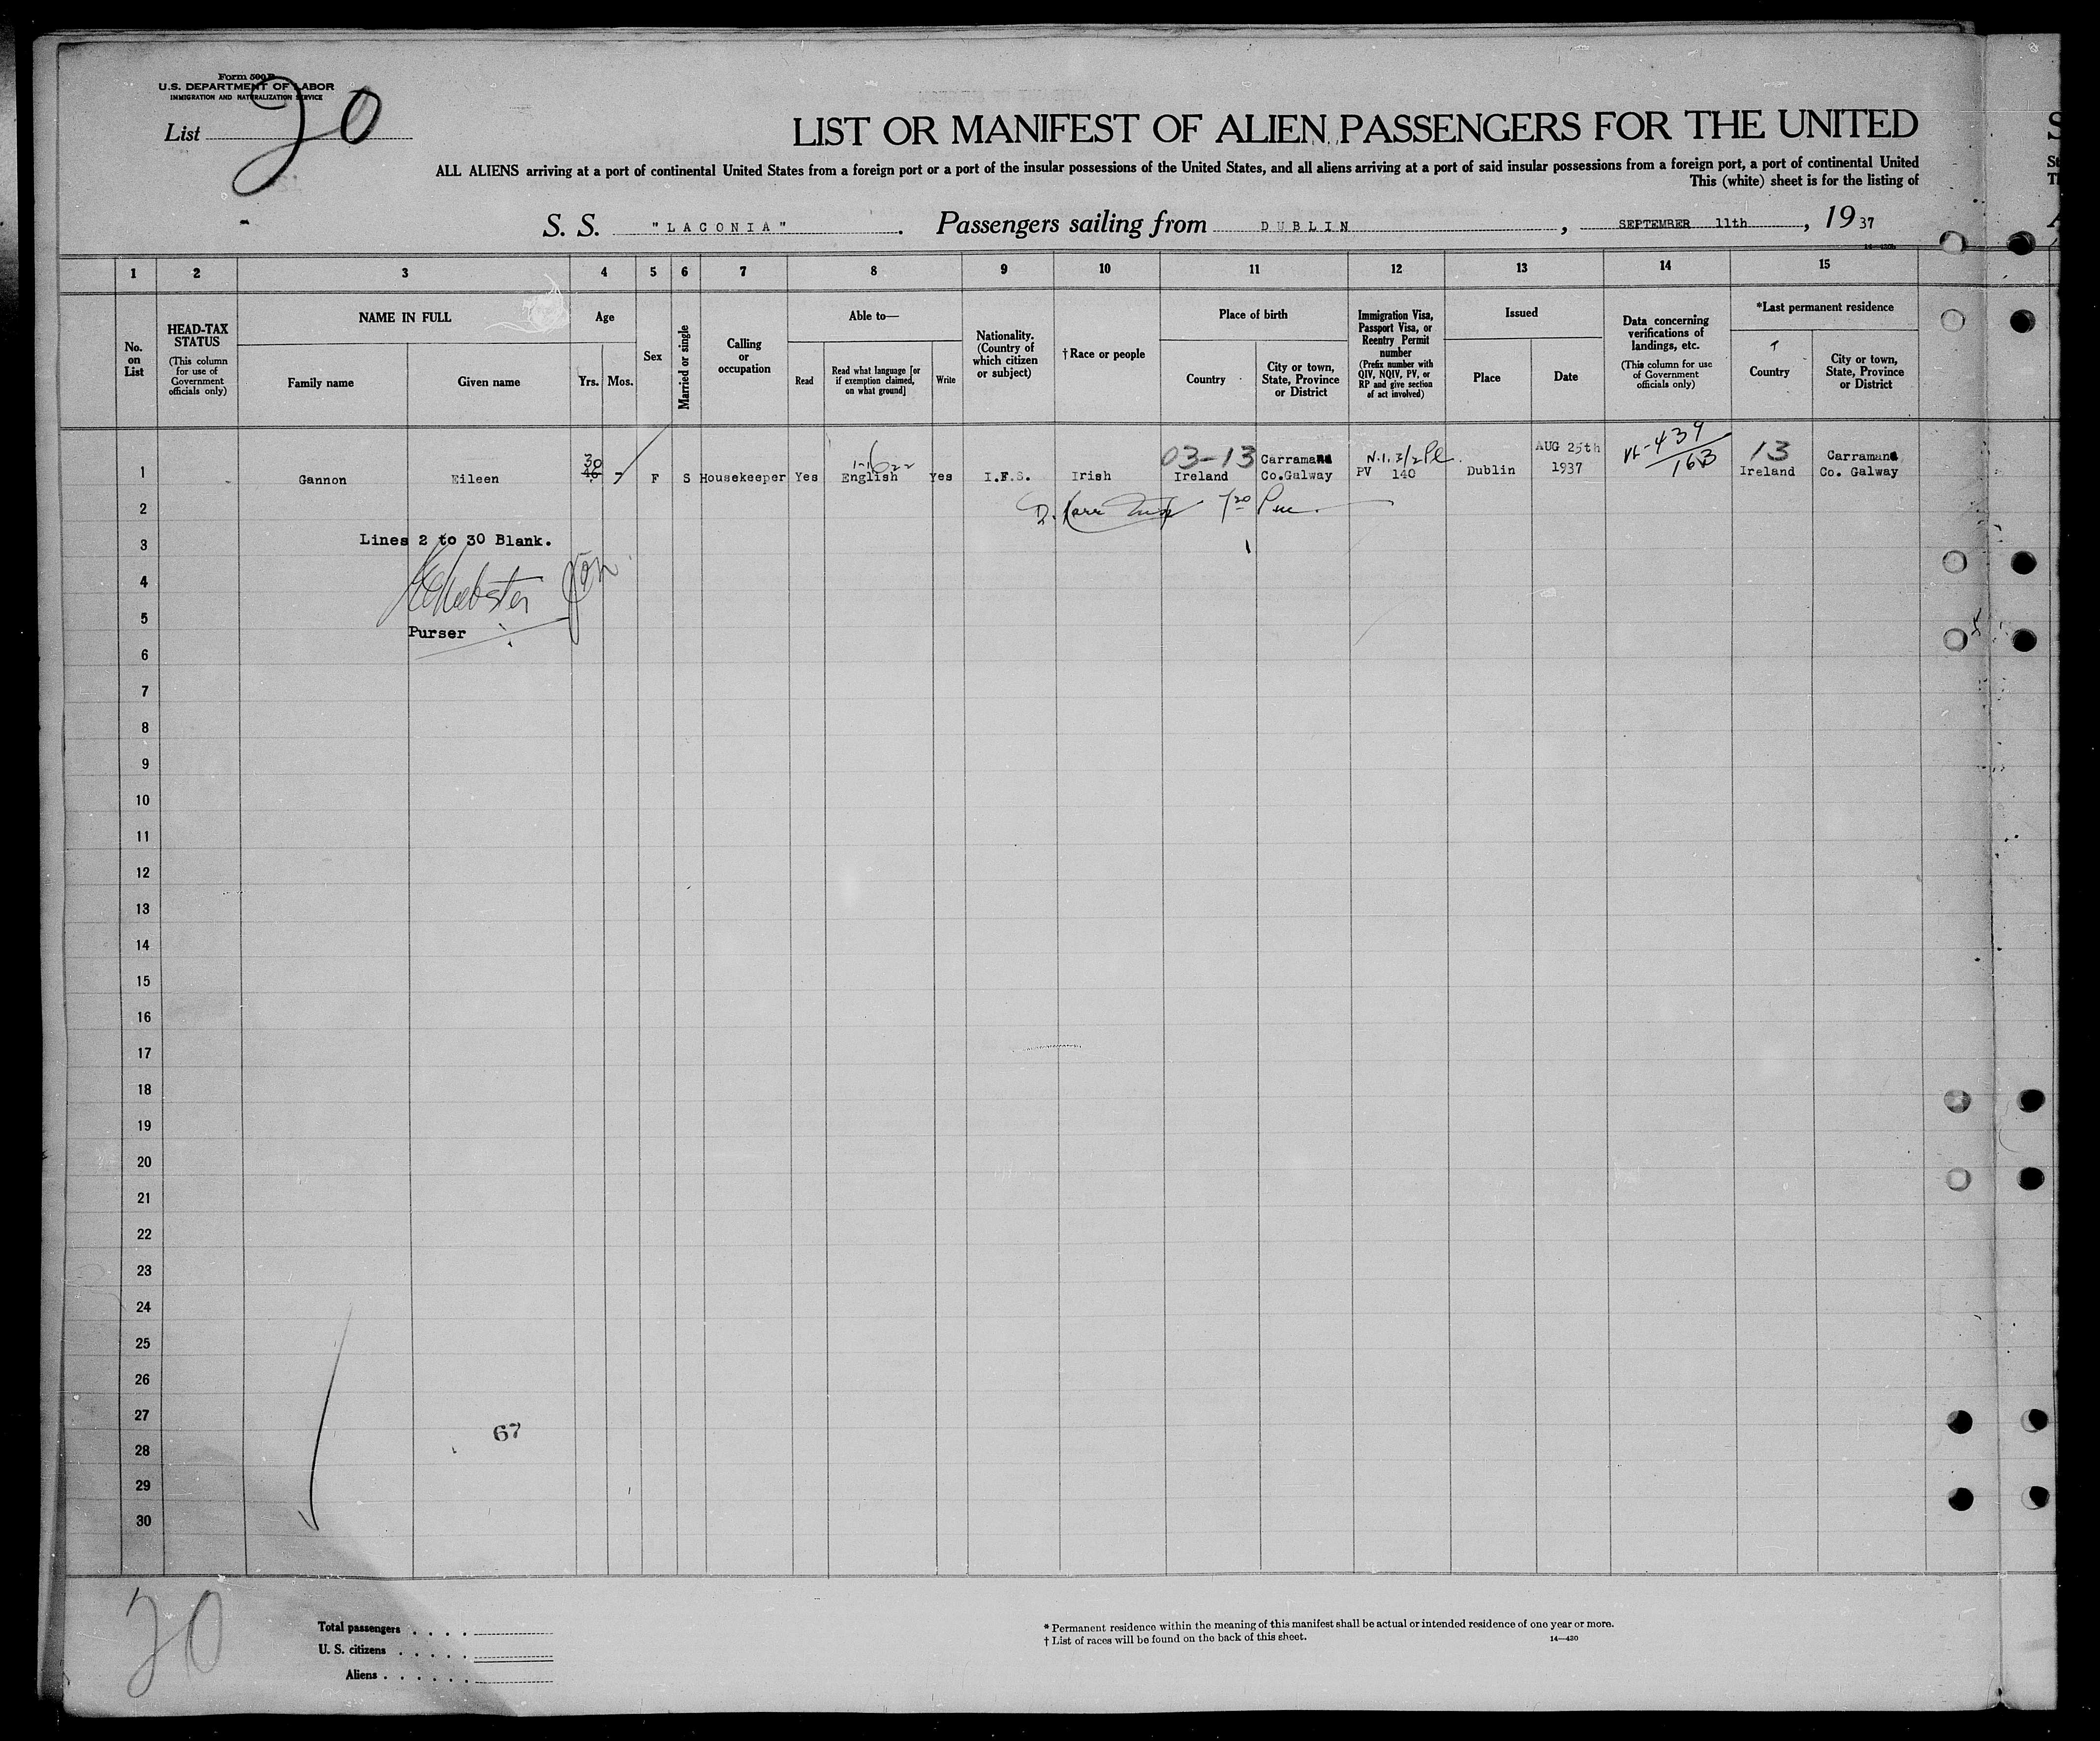 Form 500 B
U.S. DEPARTMENT OF LABOR
IMMIGRATION AND NATURALIZATION SERVICE
List 20
LIST OR MANIFEST OF ALIEN PASSENGERS FOR THE UNITED
ALL ALIENS arriving at a port of continental United States from a foreign port or a port of the insular possessions of the United States, and all aliens arriving at a port of said insular possessions from a foreign port, a port of continental United
This (white) sheet is for the listing of
S. S. "LACONIA". Passengers sailing from DUBLIN, SEPTEMBER 11th, 1937
1 2 3 4 5 6 7 8 9 10 11 12 13 14 15
No. on List
HEAD-TAX STATUS
(This column for use of Government officials only)
NAME IN FULL
Family name
Given name
Age
Yrs. Mos.
Sex
Married or single
Calling or occupation
Able to—
Read
Read what language [or if exemption claimed, on what ground]
Write
Nationality. (Country of which citizen or subject)
†Race or people
Place of birth
Country
City or town, State, Province or District
Immigration Visa, Passport Visa, or Reentry Permit number
(Prefix number with QIV, NQIV, PV, or RP and give section of act involved)
Issued
Place
Date
Data concerning verifications of landings, etc.
(This column for use of Government officials only)
*Last permanent residence
Country
City or town, State, Province or District
30 03-13 Carramana AUG 25th 439 13 Carramana
1 Gannon Eileen 7 F S Housekeeper Yes English Yes I.F.S. Irish Ireland Co.Galway PV 140 Dublin 1937 163 Ireland Co. Galway
2
3 Lines 2 to 30 Blank.
4
5
Purser
6
7
8
9
10
11
12
13
14
15
16
17
18
19
20
21
22
23
24
25
26
27
67
28
29
30
20
Total passengers
U. S. citizens
Aliens
* Permanent residence within the meaning of this manifest shall be actual or intended residence of one year or more.
† List of races will be found on the back of this sheet. 14—430